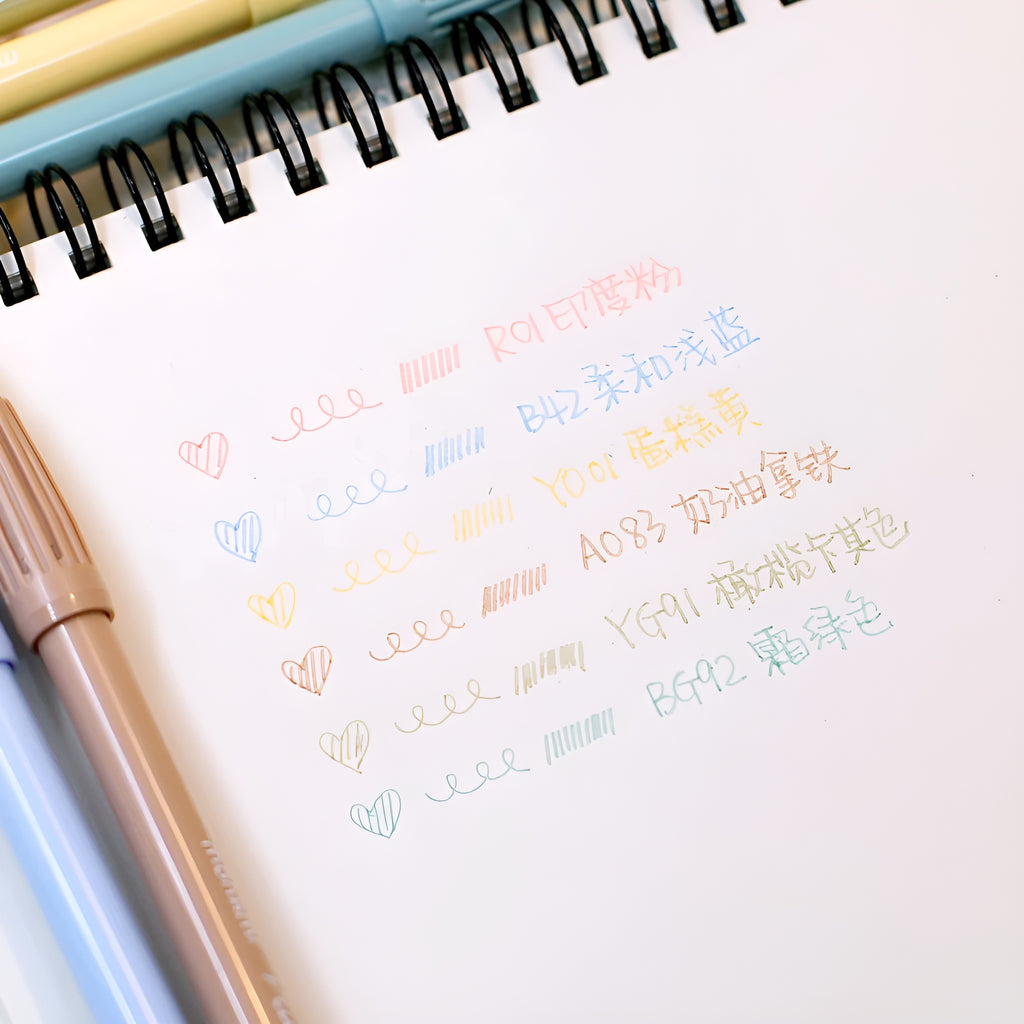 R01 印度粉
B42 柔和浅蓝
Y001 蛋糕黄
A083 奶油拿铁
YG91 橄榄卡其色
BG92 霜绿色